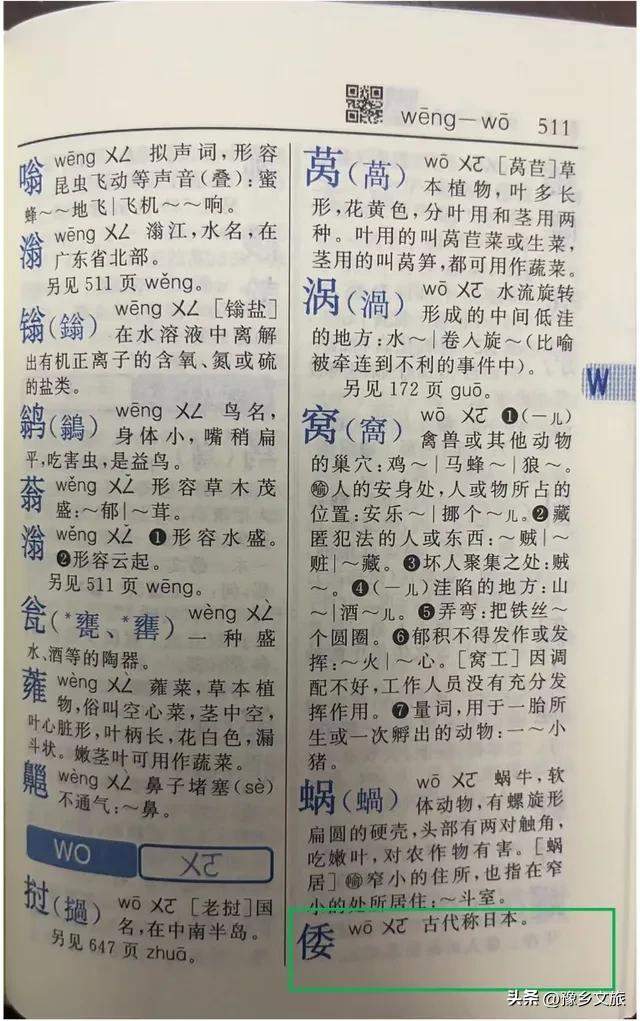 wēng—wō 511
嗡 wēng ㄨㄥ 拟声词,形容
昆虫飞动等声音(叠):蜜
蜂~~地飞|飞机~~响。
滃 wēng ㄨㄥ 滃江,水名,在
广东省北部。
另见511页wěng。
镃(鎓) wēng ㄨㄥ [鎓盐]
在水溶液中离解
出有机正离子的含氧、氮或硫
的盐类。
鹟(鶲) wēng ㄨㄥ 鸟名,
身体小,嘴稍扁
平,吃害虫,是益鸟。
蓊 wěng ㄨㄥˇ 形容草木茂
盛:~郁|~茸。
滃 wěng ㄨㄥˇ ❶形容水盛。
❷形容云起。
另见511页wēng。
瓮(*甕、*罋) wèng ㄨㄥˋ
一种盛
水、酒等的陶器。
蕹 wèng ㄨㄥˋ 蕹菜,草本植
物,俗叫空心菜,茎中空,
叶心脏形,叶柄长,花白色,漏
斗状。嫩茎叶可用作蔬菜。
齆 wèng ㄨㄥˋ 鼻子堵塞(sè)
不通气:~鼻。
WO ㄨㄛ
挝(撾) wō ㄨㄛ [老挝]国
名,在中南半岛。
另见647页zhuā。
莴(萵) wō ㄨㄛ [莴苣]草
本植物,叶多长
形,花黄色,分叶用和茎用两
种。叶用的叫莴苣菜或生菜,
茎用的叫莴笋,都可用作蔬菜。
涡(渦) wō ㄨㄛ 水流旋转
形成的中间低洼
的地方:水~|卷入旋~(比喻
被牵连到不利的事件中)。
另见172页guō。
窝(窩) wō ㄨㄛ ❶(一儿)
禽兽或其他动物
的巢穴:鸡~|马蜂~|狼~。
喻人的安身处,人或物所占的
位置:安乐~|挪个~儿。❷藏
匿犯法的人或东西:~贼|~
赃|~藏。❸坏人聚集之处:贼
~。❹(一儿)洼陷的地方:山
~|酒~儿。❺弄弯:把铁丝~
个圆圈。❻郁积不得发作或发
挥:~火|~心。[窝工]因调
配不好,工作人员没有充分发
挥作用。❼量词,用于一胎所
生或一次孵出的动物:一~小
猪。
蜗(蝸) wō ㄨㄛ 蜗牛,软
体动物,有螺旋形
扁圆的硬壳,头部有两对触角,
吃嫩叶,对农作物有害。[蜗
居]喻窄小的住所,也指在窄
小的处所居住:~斗室。
倭 wō ㄨㄛ 古代称日本。
W
头条 @豫乡文旅